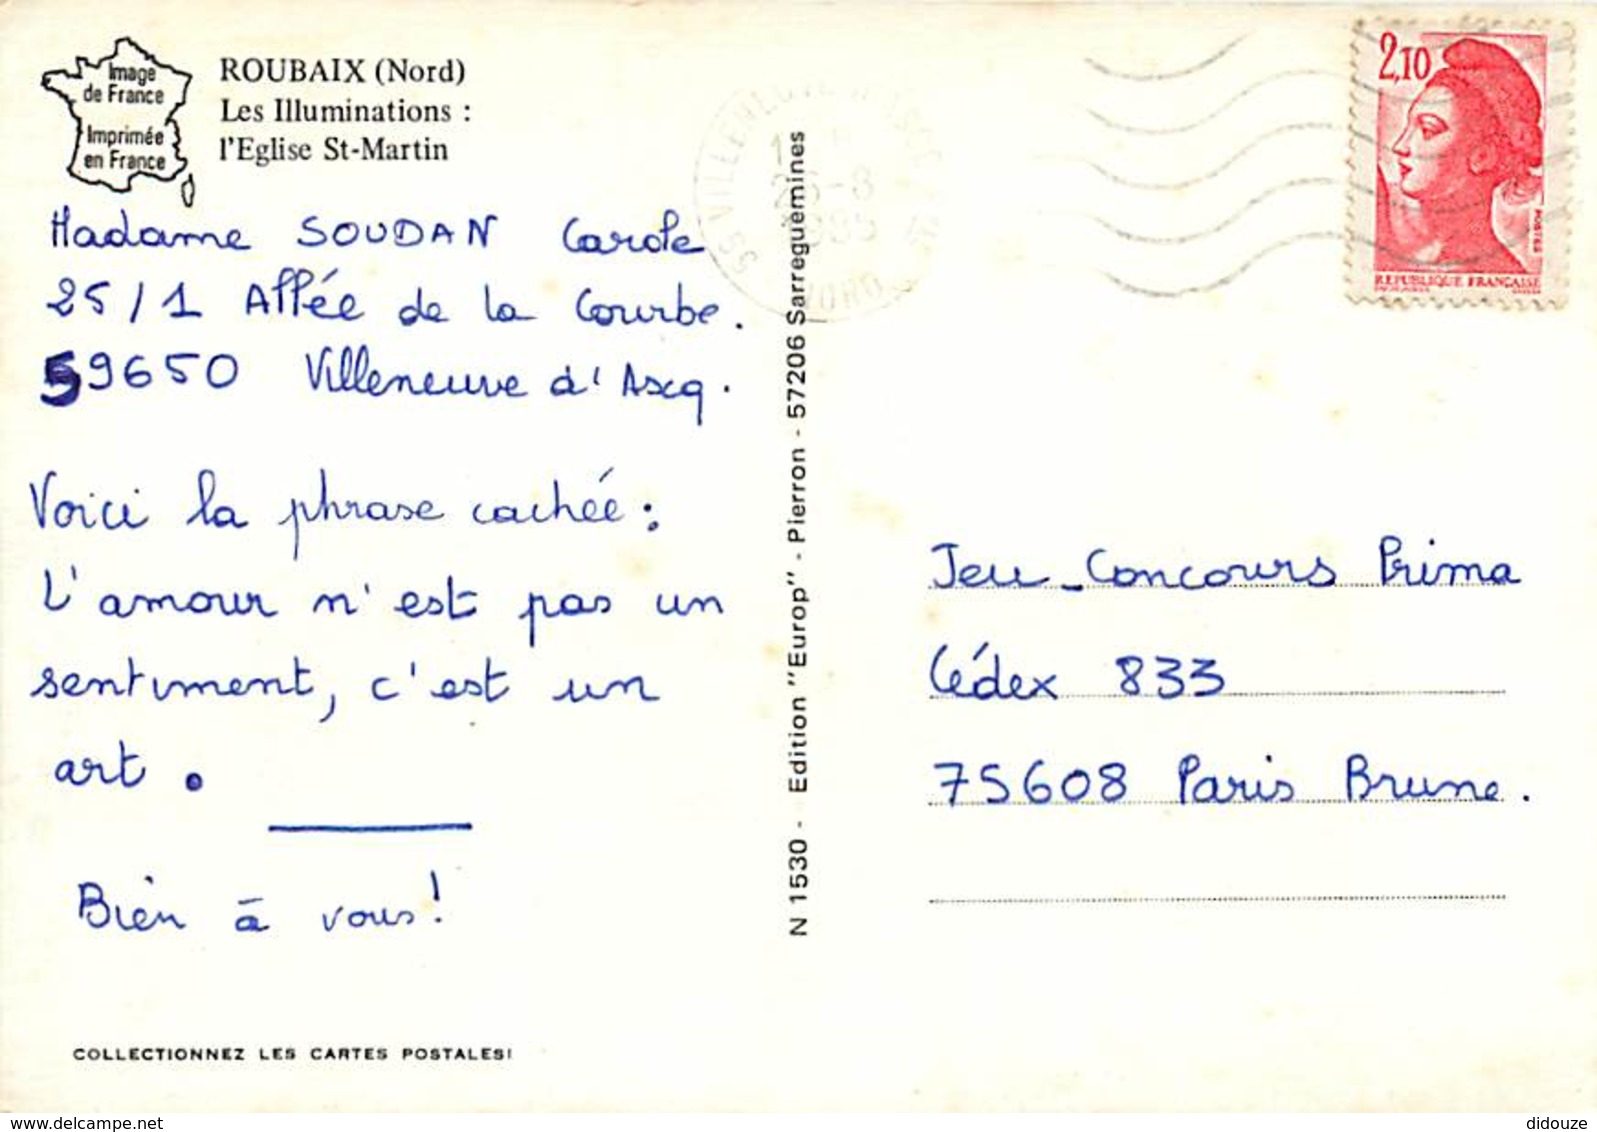 Image
de France
Imprimée
en France
ROUBAIX (Nord)
Les Illuminations :
l'Eglise St-Martin
Madame SOUDAN Carole
25/1 Allée de la Courbe.
59650 Villeneuve d'Ascq.
Voici la phrase cachée :
L'amour n'est pas un
sentiment, c'est un
art.
Bien à vous!
COLLECTIONNEZ LES CARTES POSTALES!
N 1530 - Edition "Europ" - Pierron - 57206 Sarreguemines
59 VILLENEUVE D'ASCQ
-8
1985
NORD
2,10
POSTES
REPUBLIQUE FRANÇAISE
Jeu-Concours Prima
Cédex 833
75608 Paris Brune.
delcampe.net
didouze